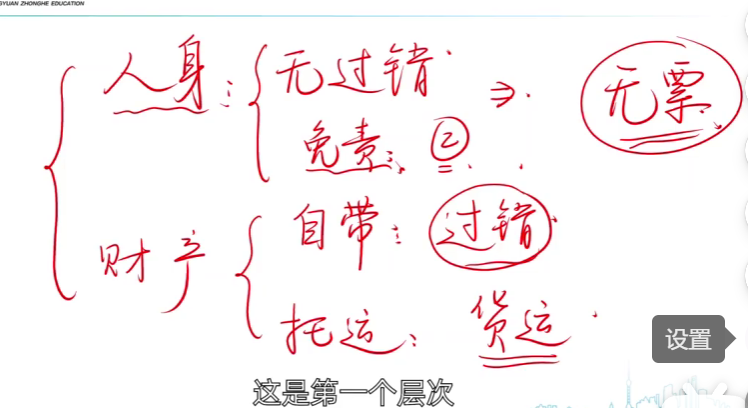 GYUAN ZHONGHE EDUCATION
人身: 无过错 ⇒ 无票
免责: ②
财产 自带: 过错
托运: 货运
设置
这是第一个层次